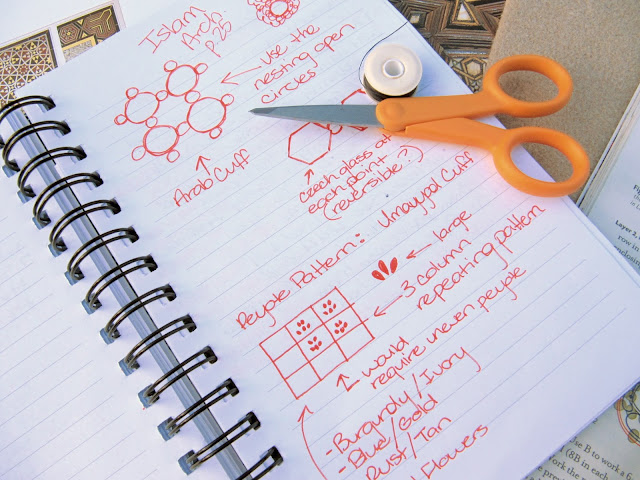 Islam
Arch.
P.25
Use the
nesting open
circles
Arab Cuff
czech glass at
each point
(reversible?)
Peyote Pattern: Umayyad Cuff
large
3 column
repeating pattern
would
require uneven peyote
-Burgundy/Ivory
-Blue/Gold
Rust/Tan
Flowers
Layer 2,
row in
enclosin
se B to work a 6
(8B in each
ork the r